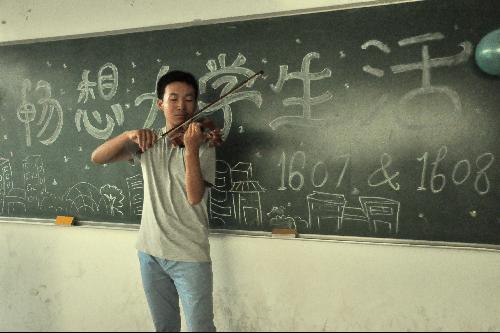 畅想大学生活
1607 & 1608